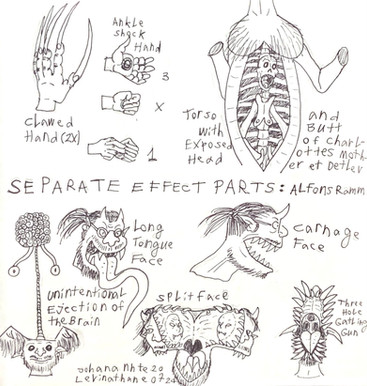 Ankle
shock
Hand
3
x
1
Clawed
Hand (2X)
Torso
with
Exposed
Head
and
Butt
of Charl-
ottes Moth-
er et Detlev
SEPARATE EFFECT PARTS: Alfons Ramm
Long
Tongue
Face
Carnage
Face
Unintentional
Ejection of
the Brain
Splitface
Three
Hole
Gatling
Gun